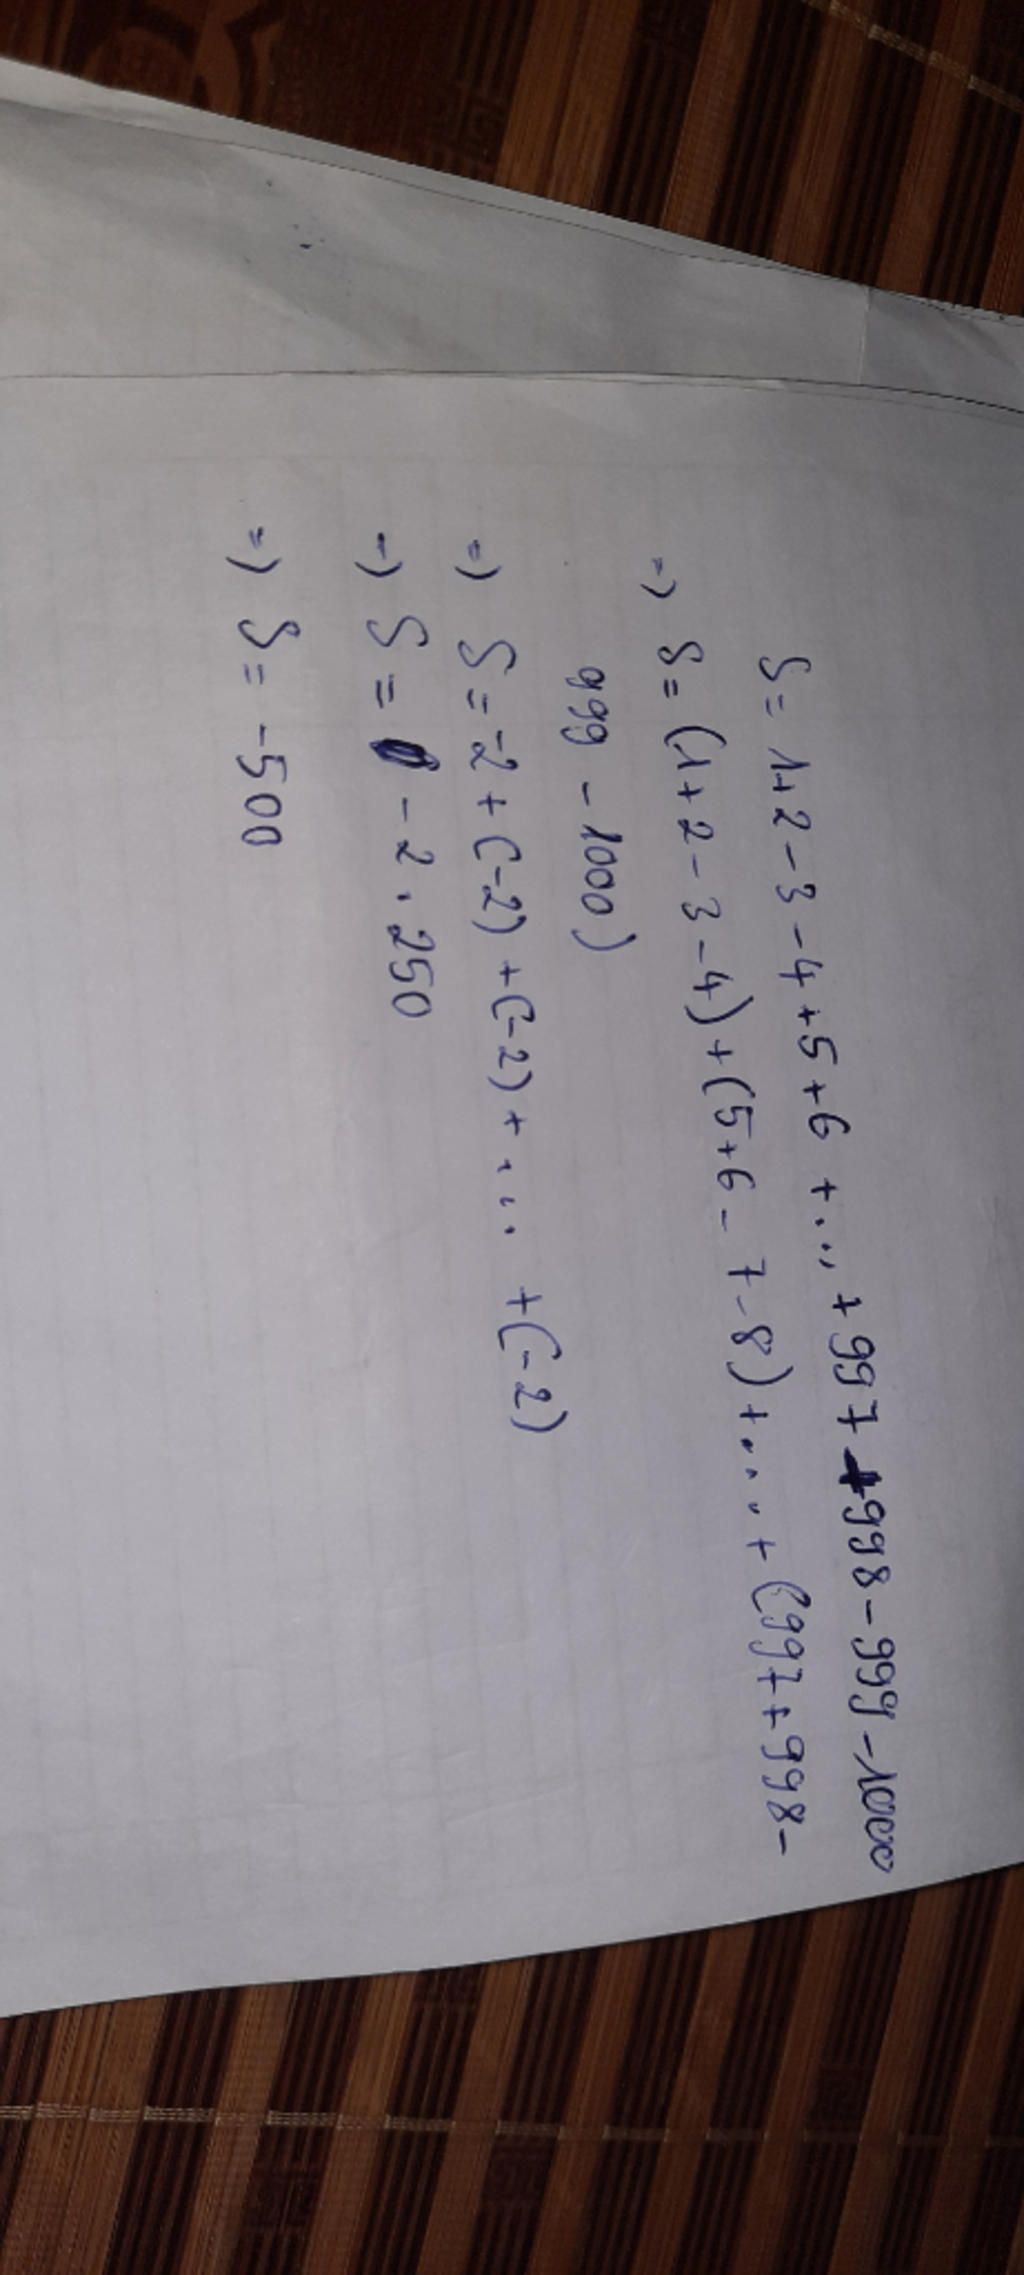 S = 1+2-3-4+5+6 +...+997+998-999-1000
=) S = (1+2-3-4)+(5+6-7-8)+...+(997+998-
999-1000)
=) S = -2+(-2)+(-2)+... +(-2)
=) S = -2.250
=) S = -500